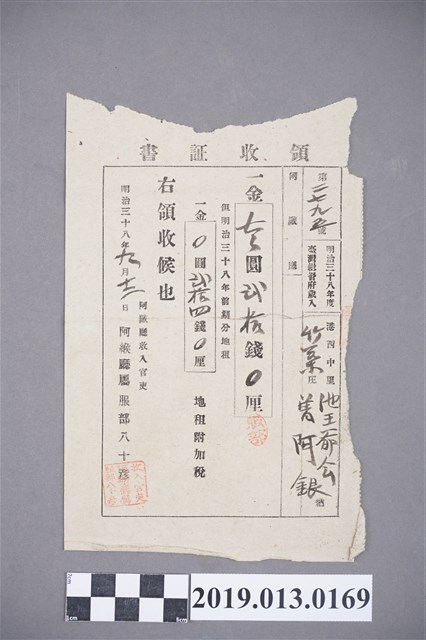 領收証書
第二七九五號
明治三十八年度
臺灣總督府歲入
阿緱廳
港西中里
竹葉庄
池王爺会
曾阿銀 納
一金 壱圓弐拾錢0厘
但明治三十八年前期分地租
一金 0圓弐拾四錢0厘 地租附加稅
右領收候也
明治三十八年九月十二日
阿緱廳收入官吏
阿緱廳屬服部八十彥
服部
1cm
5cm
2019.013.0169